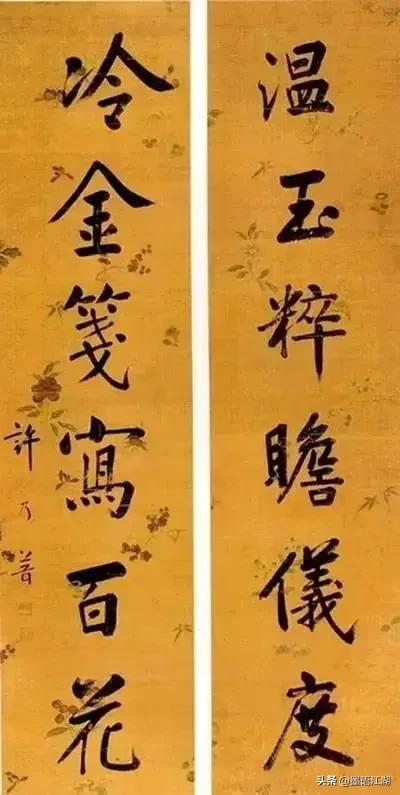 温玉粹瞻儀度
冷金箋寫百花
許乃普
头条 @墨语江湖